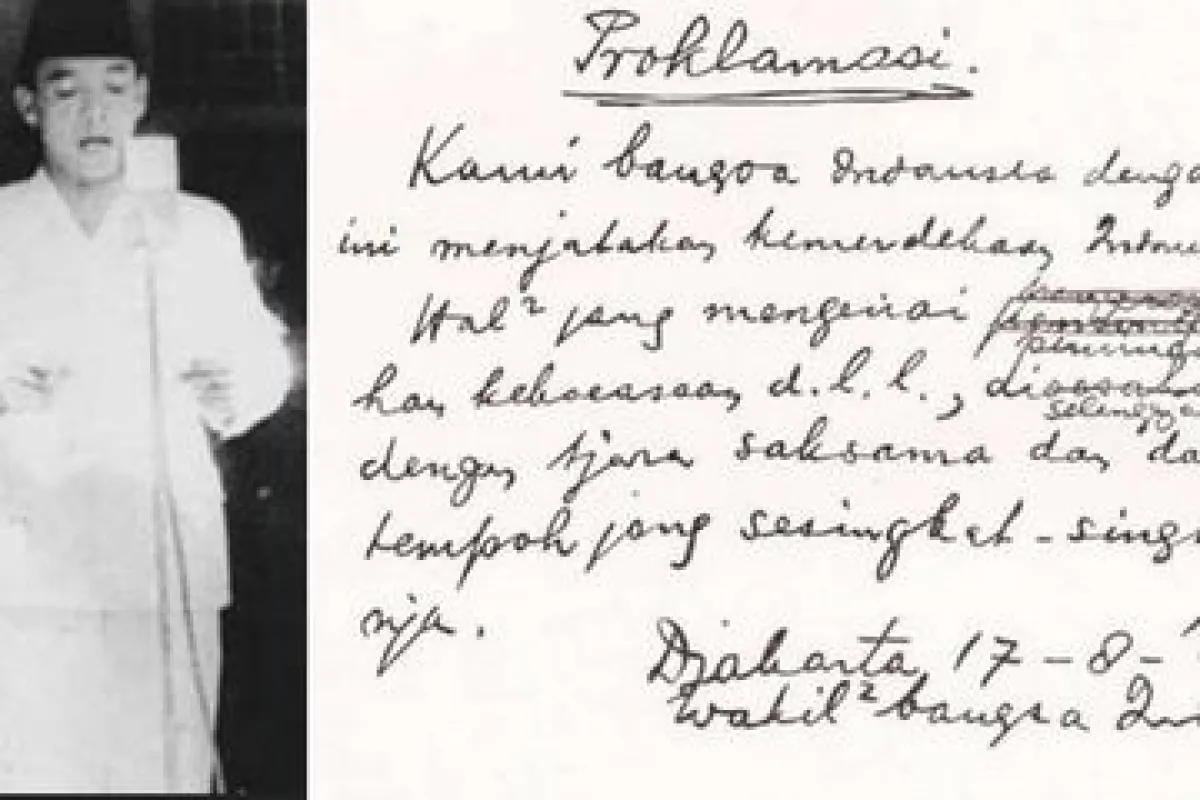 Proklamasi.
Kami bangsa Indonesia denga
ini menjatakan kemerdekaan Indone
Hal² jang mengenai
han kekoeasaan d.l.l.,
seleng
dengan tjara saksama dan da
tempoh jang sesingkat-singk
nja.
Djakarta 17-8-
Wakil² bangsa In